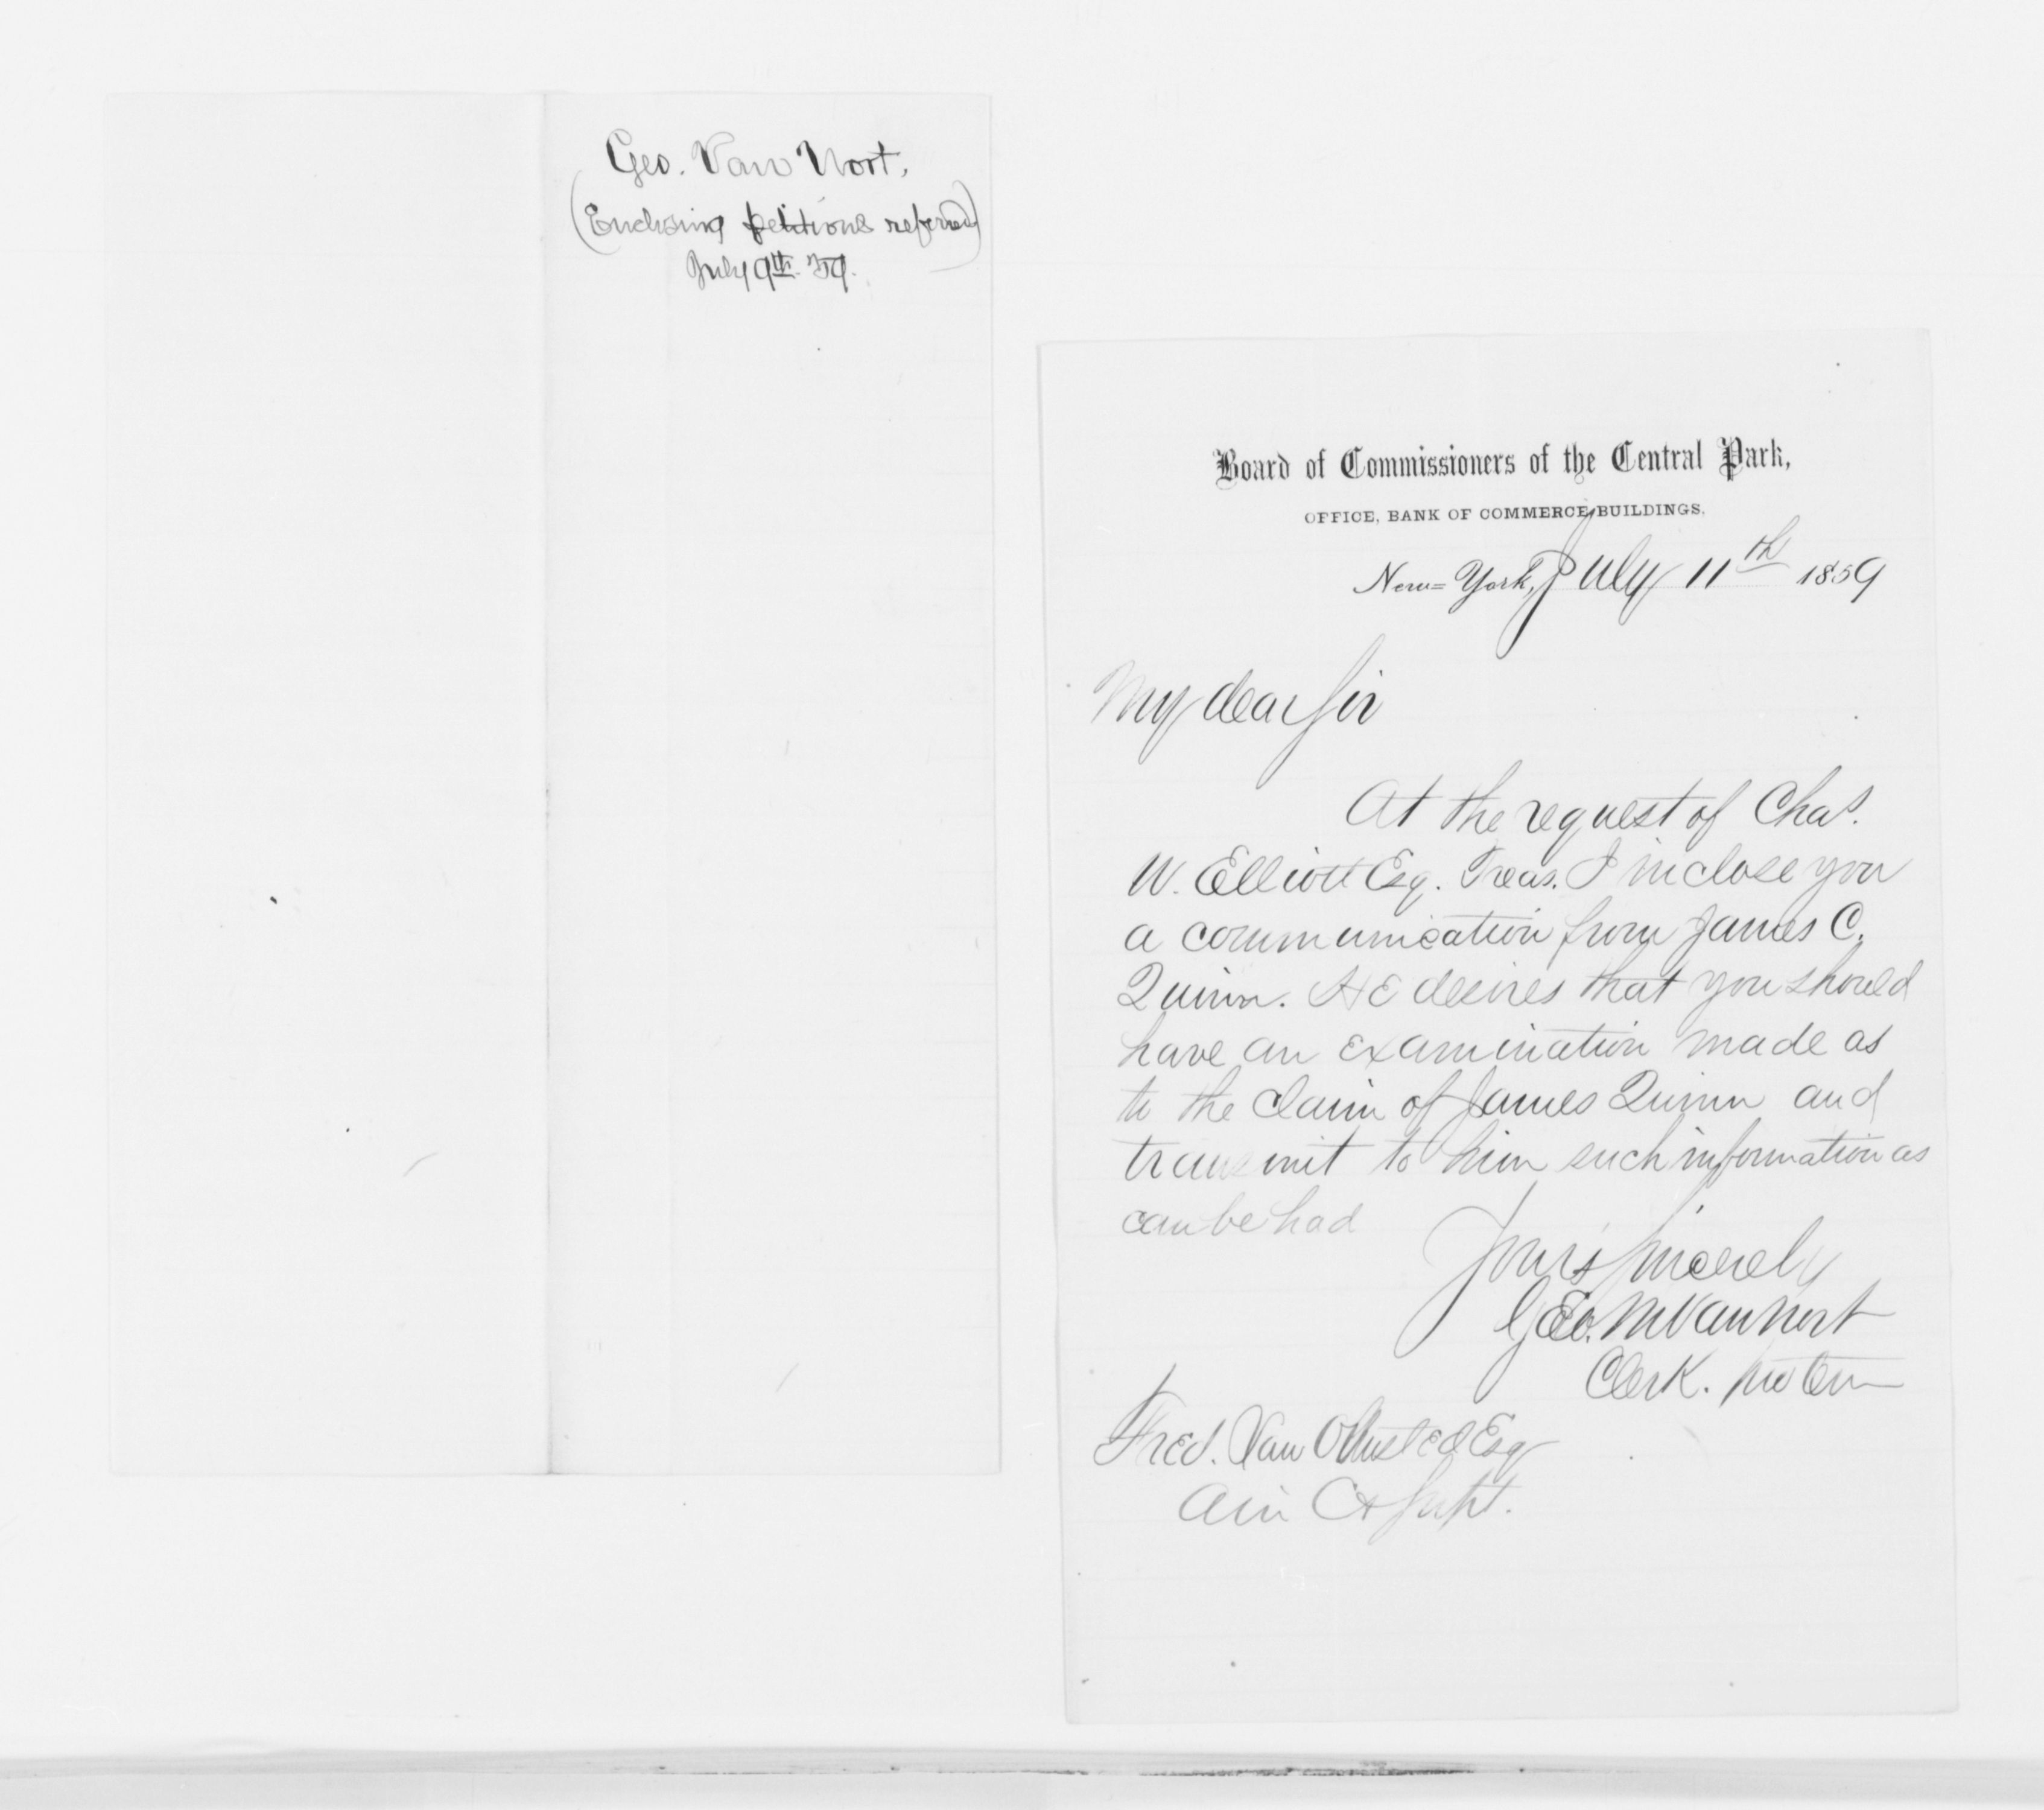 Geo. Van Nort,
(Enclosing petitions referred)
July 9th. '59.
Board of Commissioners of the Central Park,
OFFICE, BANK OF COMMERCE BUILDINGS,
New=York, July 11th 1859
My dear Sir
At the request of Chas.
W. Elliott Esq. Treas. I inclose you
a communication from James C.
Quinn. HE desires that you should
have an examination made as
to the claim of James Quinn and
transmit to him such information as
can be had
Yours Sincerely
GEo. M VanNort
Clerk. pro tem
Fred. Law Olmsted Esq
Ar in C & Supt.